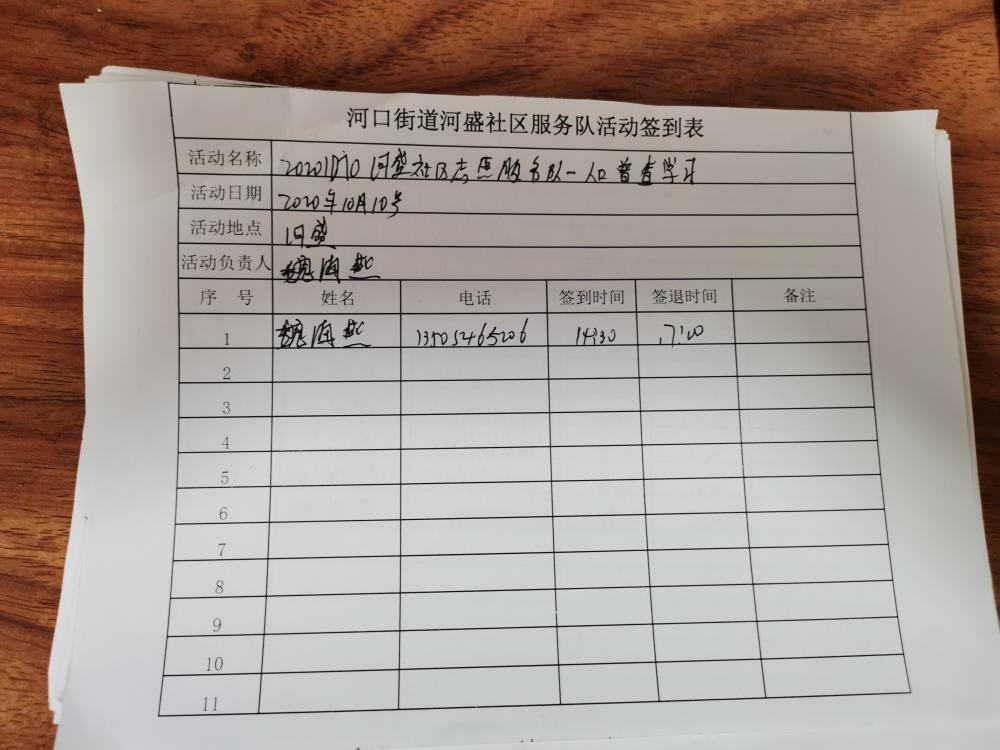 河口街道河盛社区服务队活动签到表
活动名称 20201010河盛社区志愿服务队-人口普查学习
活动日期 2020年10月10号
活动地点 河盛
活动负责人 魏海燕
序 号 姓名 电话 签到时间 签退时间 备注
1 魏海燕 13505465206 14:30 17:00
2
3
4
5
6
7
8
9
10
11